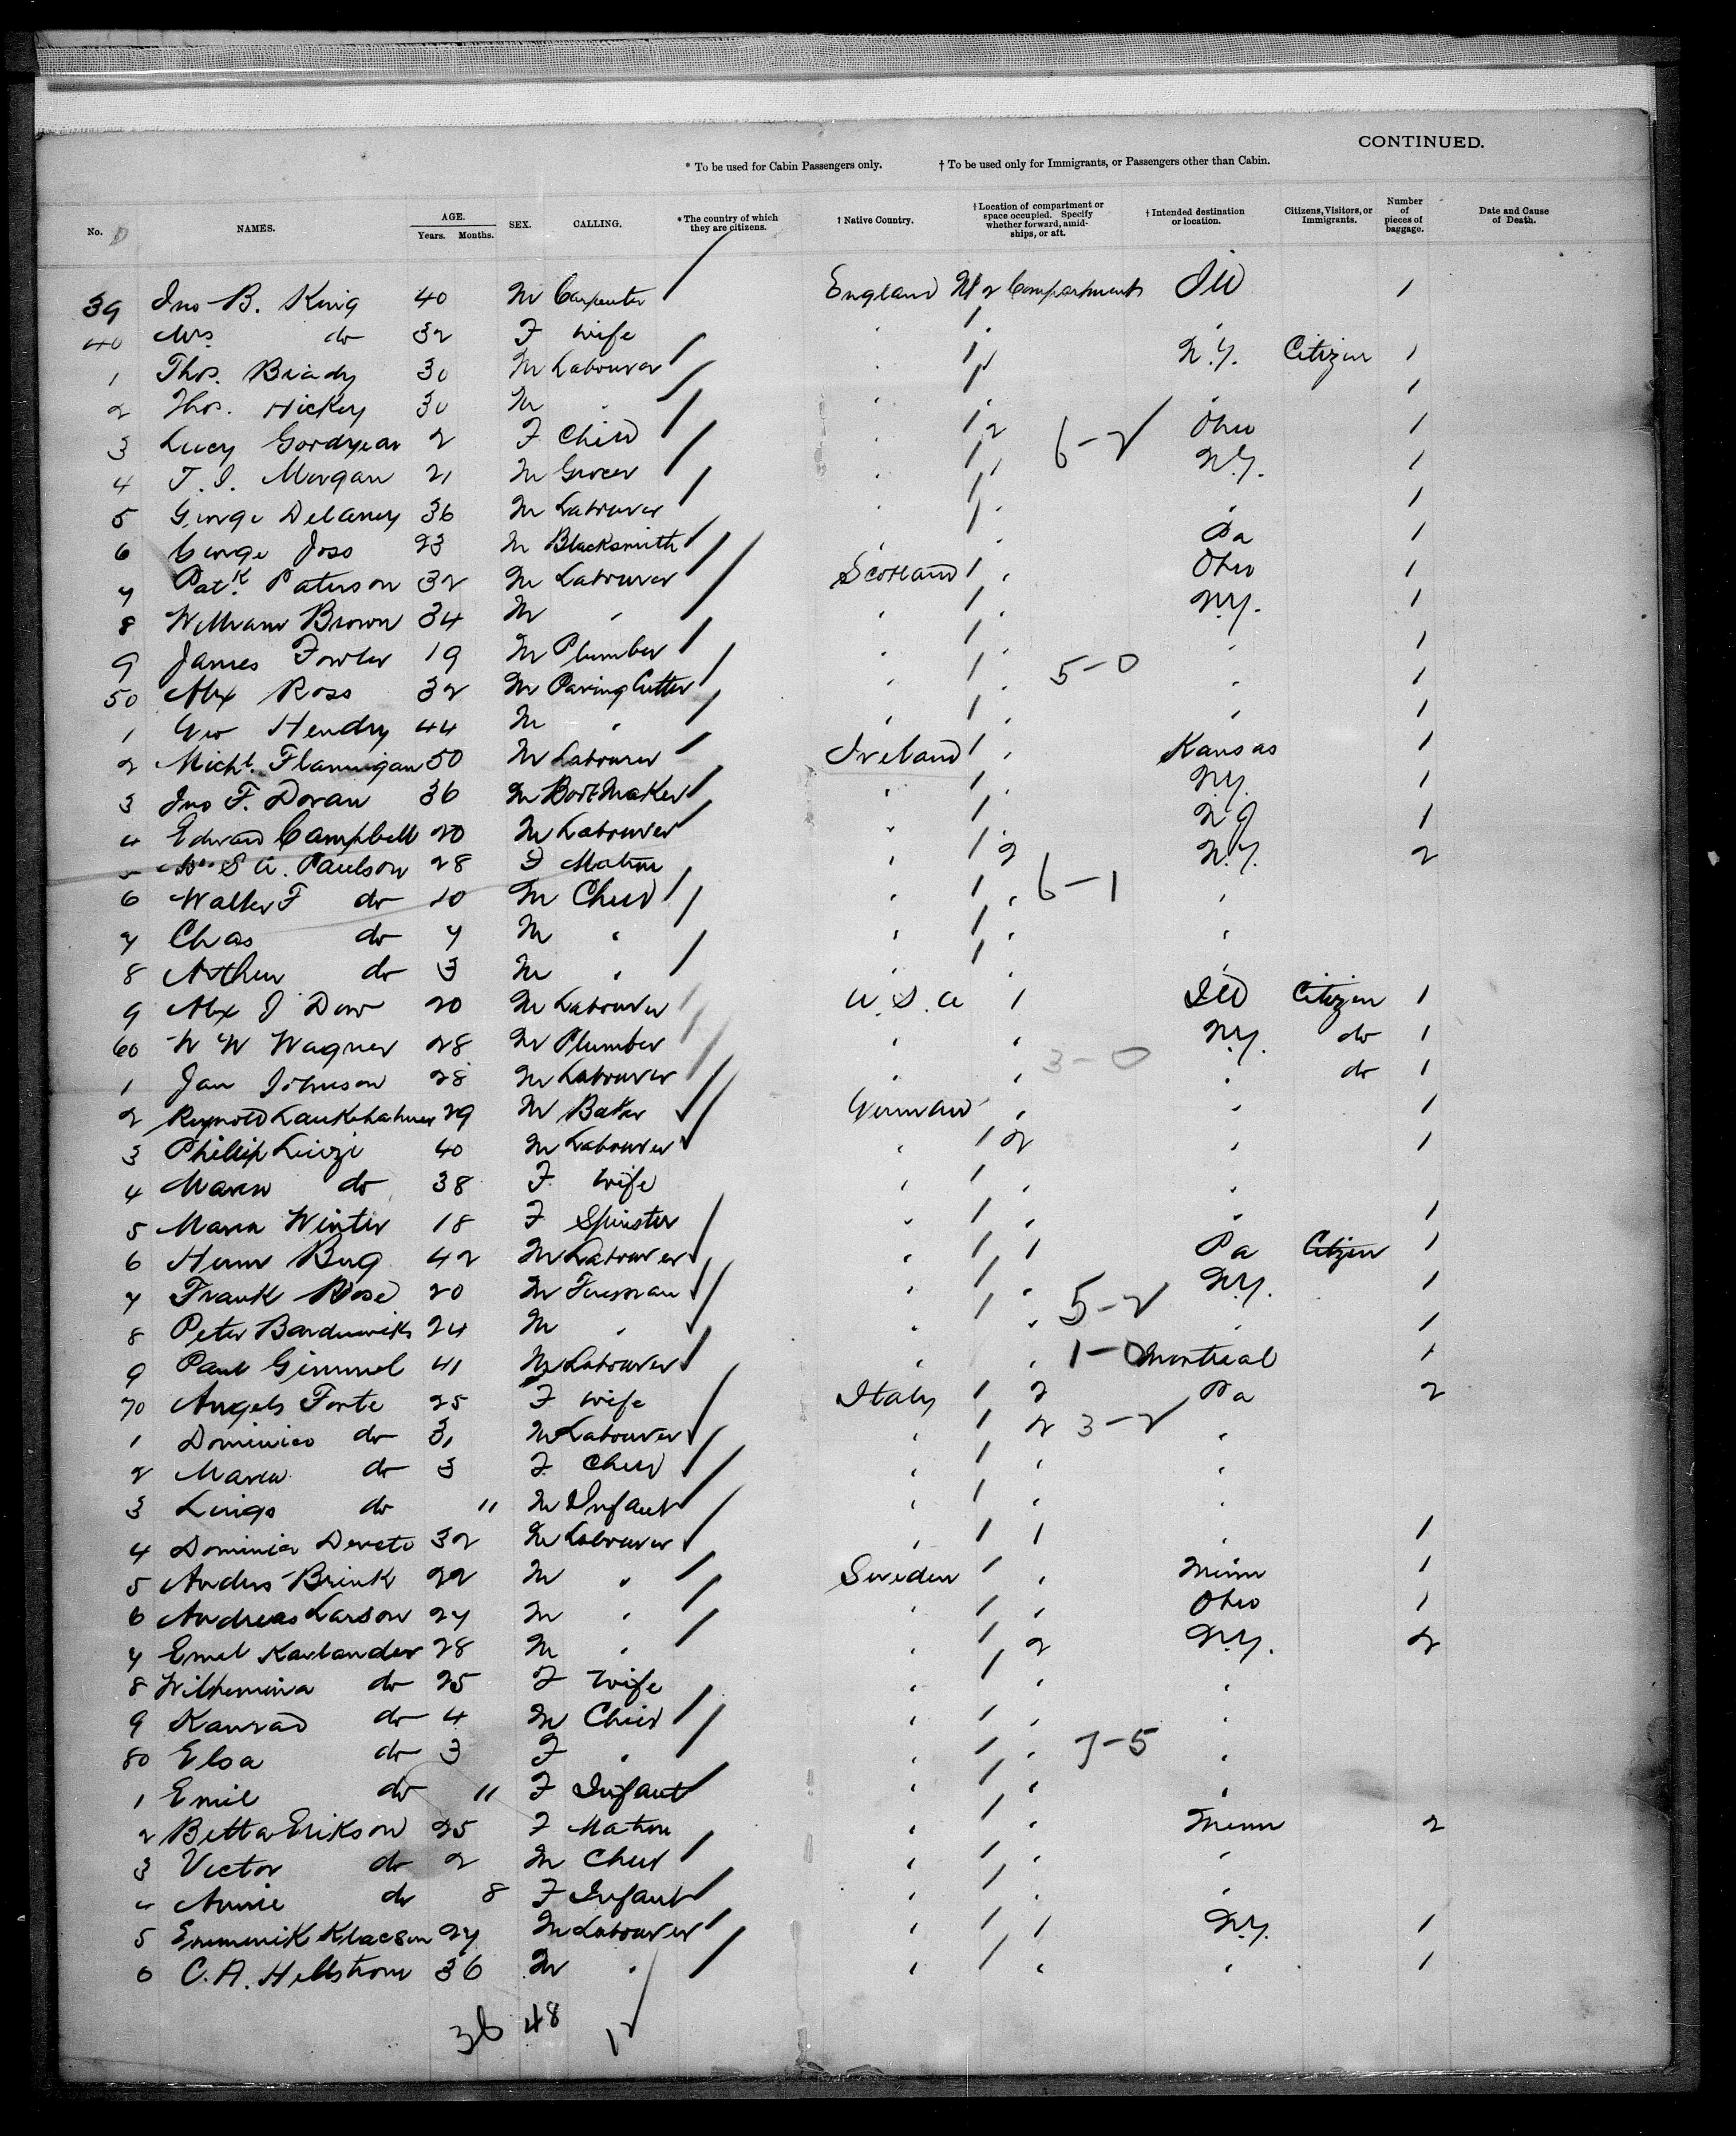 CONTINUED.
* To be used for Cabin Passengers only. † To be used only for Immigrants, or Passengers other than Cabin.
No. NAMES. AGE. Years. Months. SEX. CALLING. *The country of which they are citizens. † Native Country. † Location of compartment or space occupied. Specify whether forward, amidships, or aft. † Intended destination or location. Citizens, Visitors, or Immigrants. Number of pieces of baggage. Date and Cause of Death.
39 Jno B. King 40 M Carpenter England 2 Compartment Ill 1
40 Mrs do 32 F Wife
1 Thos. Brady 30 M Labourer N.Y. Citizen 1
2 Thos. Hickey 30 M " 1
3 Lucy Goodyear 2 F Child 2 6-2 Ohio 1
4 T. I. Morgan 21 M Grocer N.Y. 1
5 George Delaney 36 M Labourer " 1
6 George Joss 23 M Blacksmith Pa 1
7 Patk. Paterson 32 M Labourer Scotland Ohio 1
8 William Brown 34 M " N.Y. 1
9 James Fowler 19 M Plumber " 1
50 Alex Ross 32 M Paving Cutter 5-0 " 1
1 Geo Hendry 44 M " " 1
2 Michl. Flannigan 50 M Labourer Ireland Kansas 1
3 Jno F. Doran 36 M Bootmaker N.Y. 1
4 Edward Campbell 20 M Labourer N.J 1
5 Mrs S A. Paulson 28 F Matron 2 N.Y. 2
6 Walter F do 10 M Child 6-1 "
7 Chas do 7 M " "
8 Arthur do 3 M " "
9 Alex J Dow 20 M Labourer U.S.A 1 Ill Citizen 1
60 W W Wagner 28 M Plumber N.Y. do 1
1 Jan Johnson 28 M Labourer 3-0 " do 1
2 Reynold 29 M Baker German " 1
3 Phillip 40 M Labourer 2 " 1
4 Maria do 38 F Wife "
5 Maria Winter 18 F Spinster " 1
6 Berg 42 M Labourer 1 Pa Citizen 1
7 Frank Rose 20 M Fireman N.Y. 1
8 Peter 24 M " 5-2 " 1
9 Paul Gimmel 41 M Labourer 1-0 Montreal 1
70 Angels Forte 25 F Wife Italy 2 Pa 2
1 Dominico do 31 M Labourer 2 3-2 "
2 Maria do 3 F Child "
3 Luigo do 11 M Infant "
4 Dominica 32 M Labourer 1 " 1
5 Anders Brink 22 M " Sweden Minn 1
6 Andreas Larson 27 M " Ohio 1
7 Emil Karlander 28 M " 2 N.Y. 2
8 Wilhemina do 25 F Wife "
9 Konrad do 4 M Child "
80 Elsa do 3 F " 7-5 "
1 Emil do 11 F Infant "
2 Betta Erikson 25 F Matron Minn 2
3 Victor do 2 M Child "
4 Annie do 8 F Infant "
5 27 M Labourer 1 N.Y. 1
6 C. A. Hellstrom 36 M " " 1
36 48 12